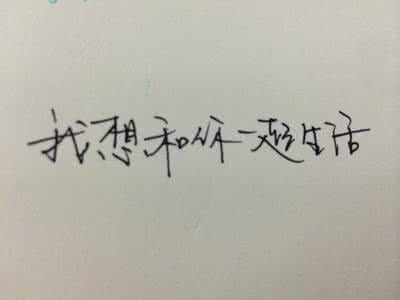 我想和你一起生活